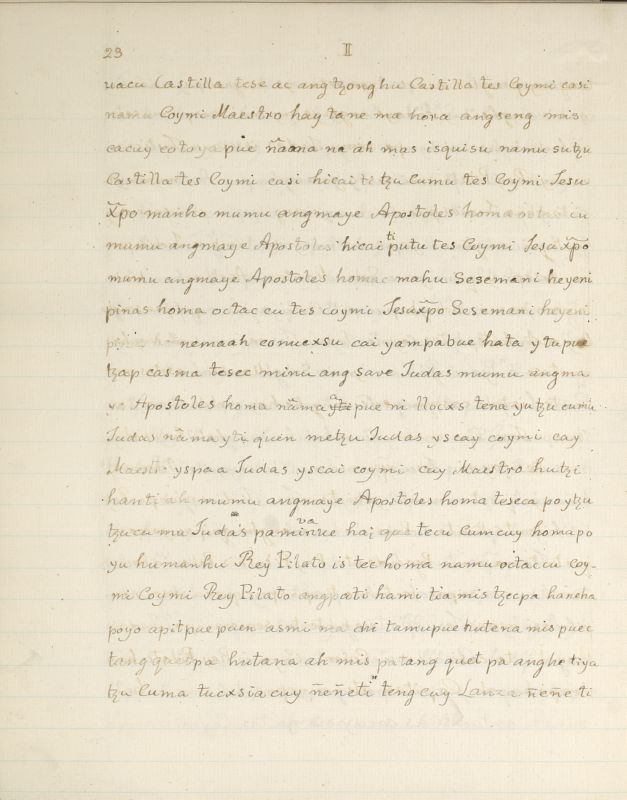 23 II
uacu Castilla tese ac angtzonghu Castilla tes Coymi casi
namu Coymi Maestro hay tane ma hora angseng mis
cacuy cotoya pue ñaana na ah mas isquisu namu sutzu
Castilla tes Coymi casi hicai ti tzu Cumu tes Coymi Jesu
x̃po manho mumu angmaye Apostoles homa octac cu
mumu angmaye Apostoles hicai ti putu tes Coymi Jesu x̃po
mumu angmaye Apostoles homac mahu Sesemani heyeni
pinas homa octac cu tes coymi Jesux̃po Sesemani heyeni
nemaah conuexsu cai yampabue hata y tupue
tzap casma tesec minu ang save Judas mumu angma
ye Apostoles homa ñama pue ni llocxs tena yutzu cumu
Judas ñama yti quen metzu Judas yscay coymi cay
Maestro yspaa Judas yscai coymi cuy Maestro hutzi
hanti ah mumu angmaye Apostoles homa teseca poytzu
tzucu ma Judas pa haj que tecu Cumcuy homapo
yu humanhu Rey Pilato is tec homa namu octaccu coy-
mi Coymi Rey Pilato angpati hami tia mis tzecpa haneha
poyo apitpue puen asmi ma dhi tamupue hutena mis puec
tang quetpa hutana ah mis patang quet pa anghetiya
tzu Cuma tucxsia cuy ñeñeti teng cuy Lanza ñeñe ti